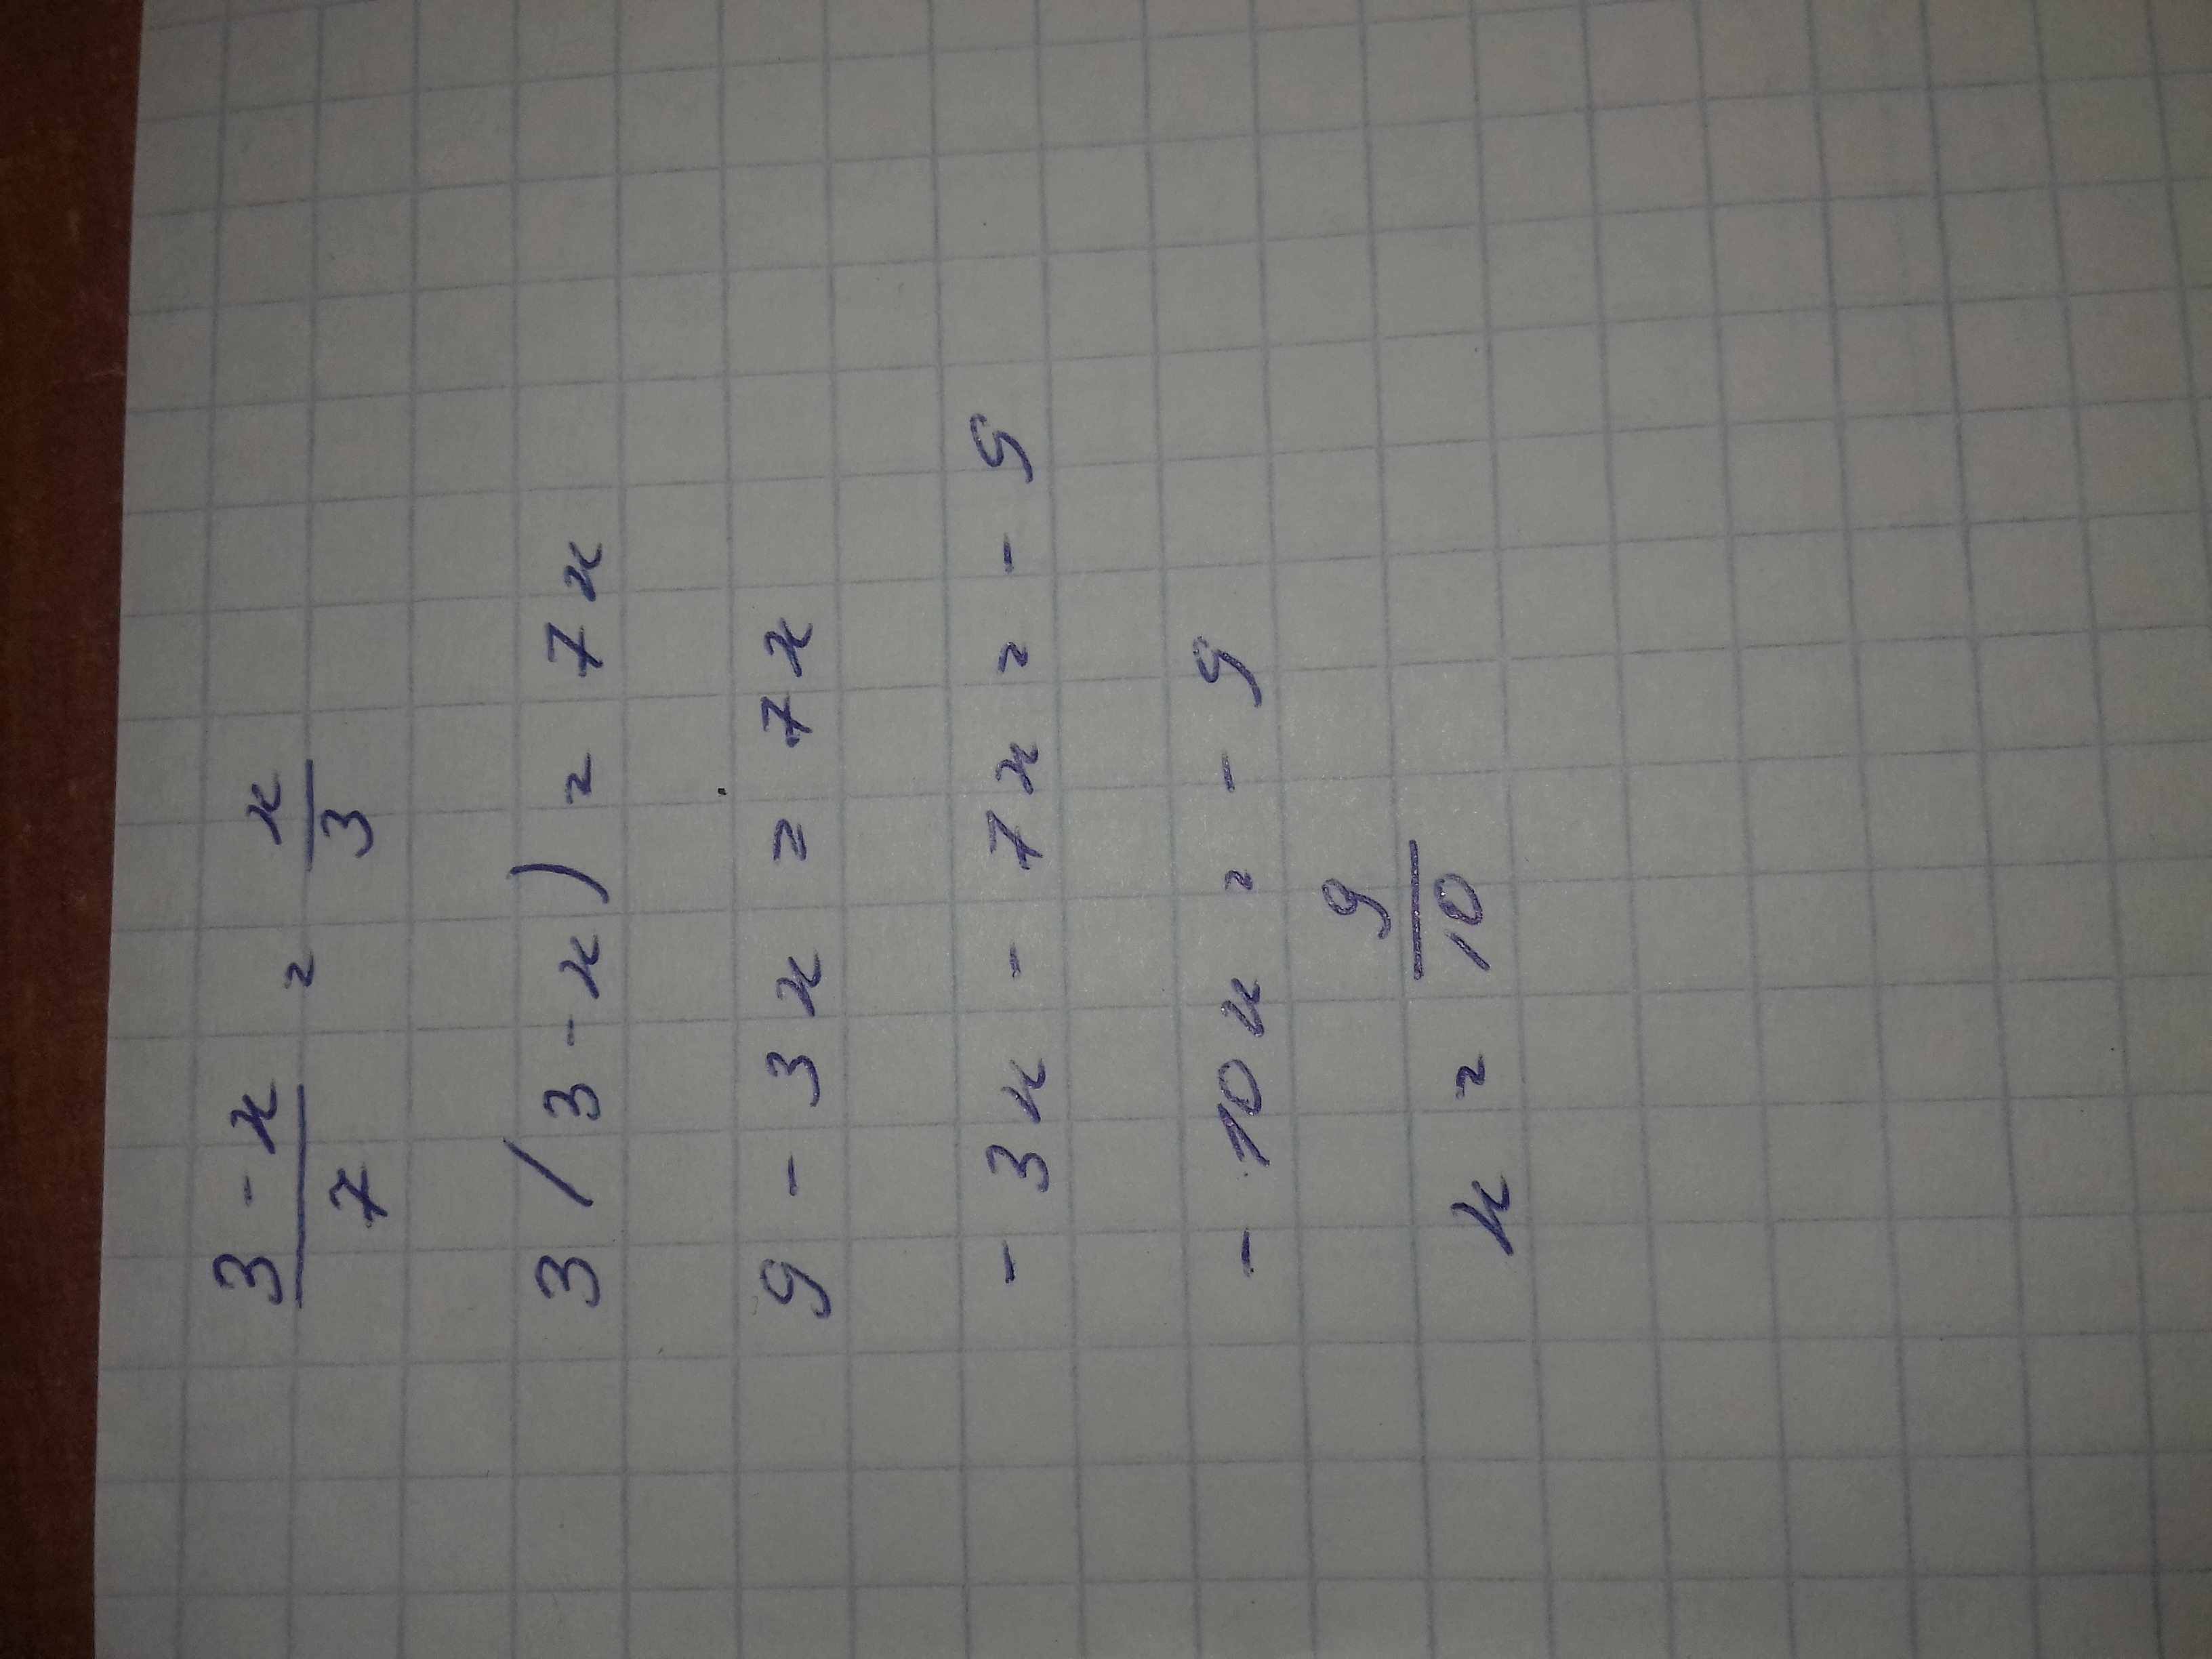 3 - x / 7 = x / 3
3 ( 3 - x ) = 7x
9 - 3x = 7x
- 3x - 7x = - 9
- 10x = - 9
x = 9 / 10